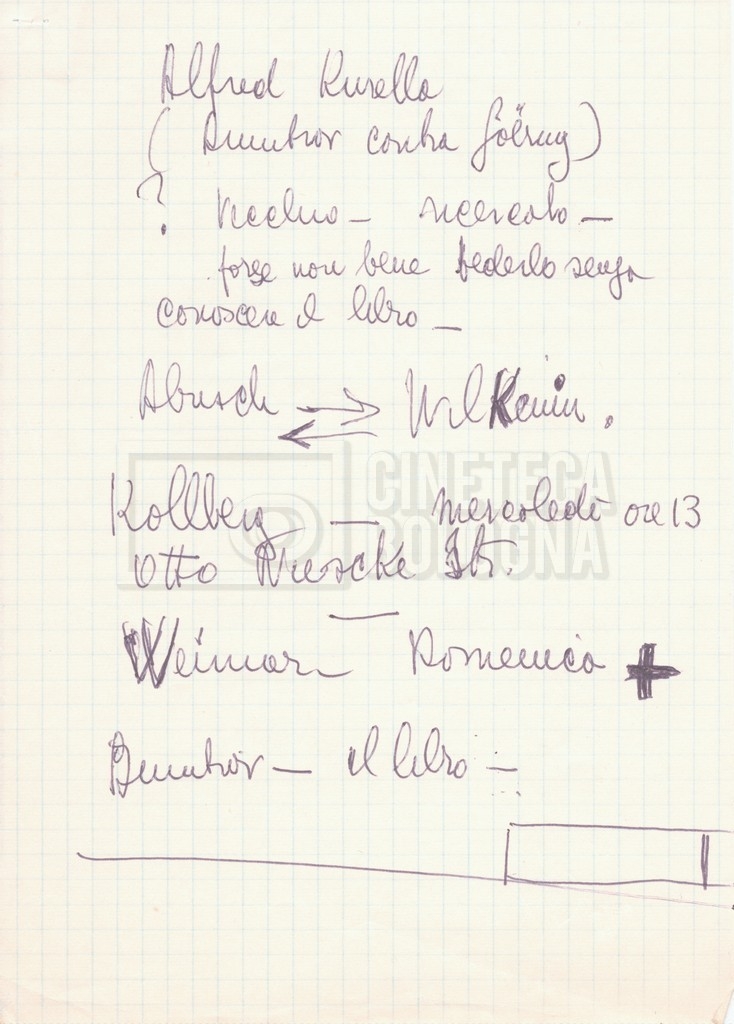 Alfred Kurella
(Dimitrov contra Göering)
? Vecchio – ricercato –
forse non bene vederlo senza
conoscere il libro –
Abusch
CINETECA
BOLOGNA
Kollberg – mercoledì ore 13
Otto Nuschke Str.
Weimar Domenica +
Dimitrov – il libro –